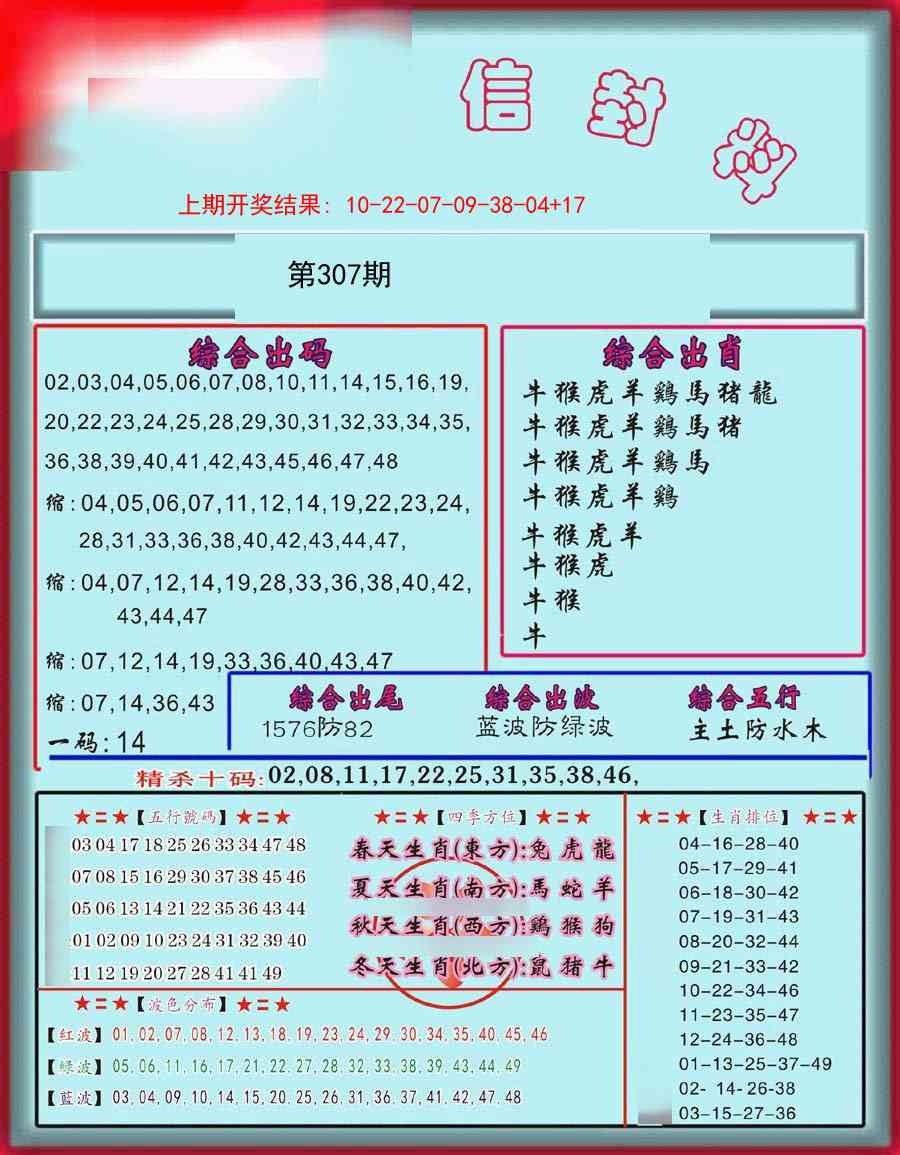 信封
上期开奖结果: 10-22-07-09-38-04+17
第307期
综合出码
02,03,04,05,06,07,08,10,11,14,15,16,19,
20,22,23,24,25,28,29,30,31,32,33,34,35,
36,38,39,40,41,42,43,45,46,47,48
缩:04,05,06,07,11,12,14,19,22,23,24,
28,31,33,36,38,40,42,43,44,47,
缩:04,07,12,14,19,28,33,36,38,40,42,
43,44,47
缩:07,12,14,19,33,36,40,43,47
缩:07,14,36,43
一码:14
综合出肖
牛猴虎羊鷄馬猪龍
牛猴虎羊鷄馬猪
牛猴虎羊鷄馬
牛猴虎羊鷄
牛猴虎羊
牛猴虎
牛猴
牛
综合出尾
1576防82
综合出波
蓝波防绿波
综合五行
主土防水木
精杀十码:02,08,11,17,22,25,31,35,38,46,
★=★【五行號碼】★=★
03 04 17 18 25 26 33 34 47 48
07 08 15 16 29 30 37 38 45 46
05 06 13 14 21 22 35 36 43 44
01 02 09 10 23 24 31 32 39 40
11 12 19 20 27 28 41 41 49
★=★【四季方位】★=★
春天生肖(東方):兔虎龍
夏天生肖(南方):馬蛇羊
秋天生肖(西方):鷄猴狗
冬天生肖(北方):鼠猪牛
★=★【波色分布】★=★
【紅波】01,02,07,08,12,13,18,19,23,24,29,30,34,35,40,45,46
【緑波】05,06,11,16,17,21,22,27,28,32,33,38,39,43,44,49
【藍波】03,04,09,10,14,15,20,25,26,31,36,37,41,42,47,48
★=★【生肖排位】★=★
04-16-28-40
05-17-29-41
06-18-30-42
07-19-31-43
08-20-32-44
09-21-33-42
10-22-34-46
11-23-35-47
12-24-36-48
01-13-25-37-49
02- 14-26-38
03-15-27-36